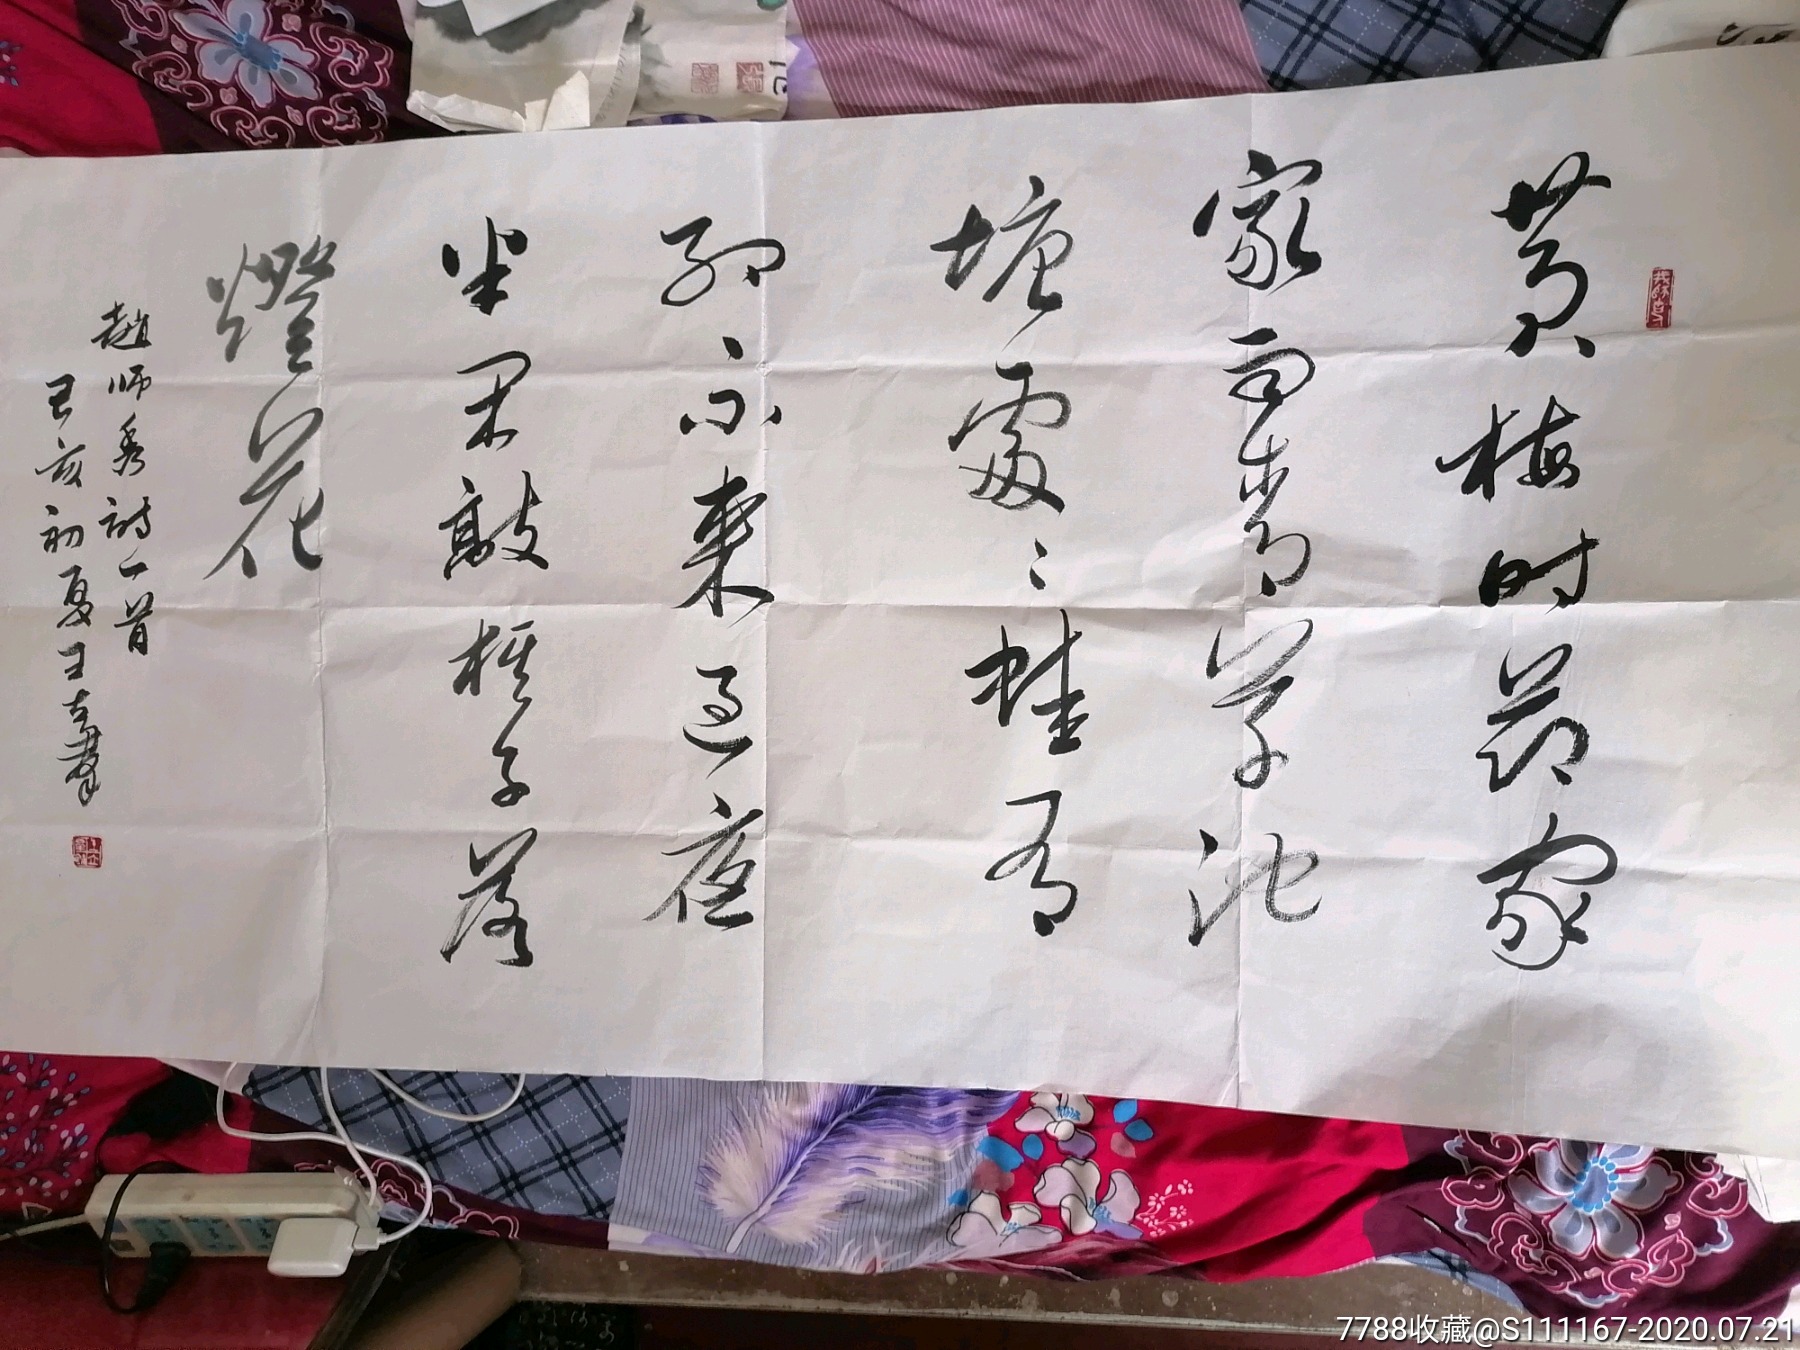 黄梅时节家
家雨青草池
塘處〻蛙有
约不来过夜
半闲敲棋子落
燈花
趙师秀诗一首
己亥初夏王
7788收藏@S111167-2020.07.21